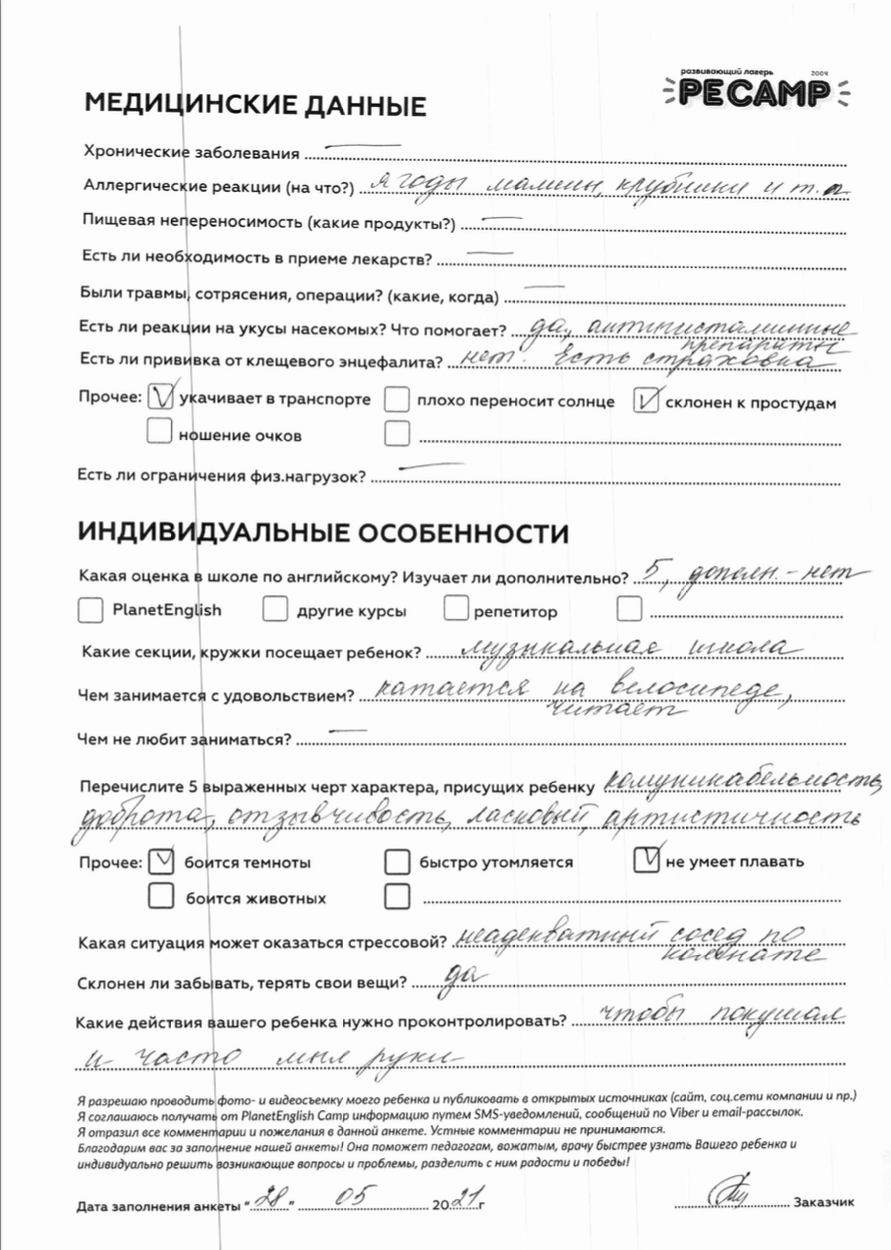 развивающий лагерь 2004
РЕСАМР
МЕДИЦИНСКИЕ ДАННЫЕ
Хронические заболевания —
Аллергические реакции (на что?) ягоды малины, клубники и т.п.
Пищевая непереносимость (какие продукты?) —
Есть ли необходимость в приеме лекарств? —
Были травмы, сотрясения, операции? (какие, когда) —
Есть ли реакции на укусы насекомых? Что помогает? да, антигистаминные
препараты
Есть ли прививка от клещевого энцефалита? нет. Есть страховка
Прочее: ☑ укачивает в транспорте ☐ плохо переносит солнце ☑ склонен к простудам
☐ ношение очков ☐
Есть ли ограничения физ.нагрузок? —
ИНДИВИДУАЛЬНЫЕ ОСОБЕННОСТИ
Какая оценка в школе по английскому? Изучает ли дополнительно? 5, дополн. - нет
☐ PlanetEnglish ☐ другие курсы ☐ репетитор ☐
Какие секции, кружки посещает ребенок? музыкальная школа
Чем занимается с удовольствием? катается на велосипеде,
читает
Чем не любит заниматься? —
Перечислите 5 выраженных черт характера, присущих ребенку комуникабельность,
доброта, отзывчивость, ласковый, артистичность
Прочее: ☑ боится темноты ☐ быстро утомляется ☑ не умеет плавать
☐ боится животных ☐
Какая ситуация может оказаться стрессовой? неадекватный сосед по
комнате
Склонен ли забывать, терять свои вещи? да
Какие действия вашего ребенка нужно проконтролировать? чтобы покушал
и часто мыл руки
Я разрешаю проводить фото- и видеосъемку моего ребенка и публиковать в открытых источниках (сайт, соц.сети компании и пр.)
Я соглашаюсь получать от PlanetEnglish Camp информацию путем SMS-уведомлений, сообщений по Viber и email-рассылок.
Я отразил все комментарии и пожелания в данной анкете. Устные комментарии не принимаются.
Благодарим вас за заполнение нашей анкеты! Она поможет педагогам, вожатым, врачу быстрее узнать Вашего ребенка и
индивидуально решить возникающие вопросы и проблемы, разделить с ним радости и победы!
Дата заполнения анкеты "28" 05 2021г Заказчик